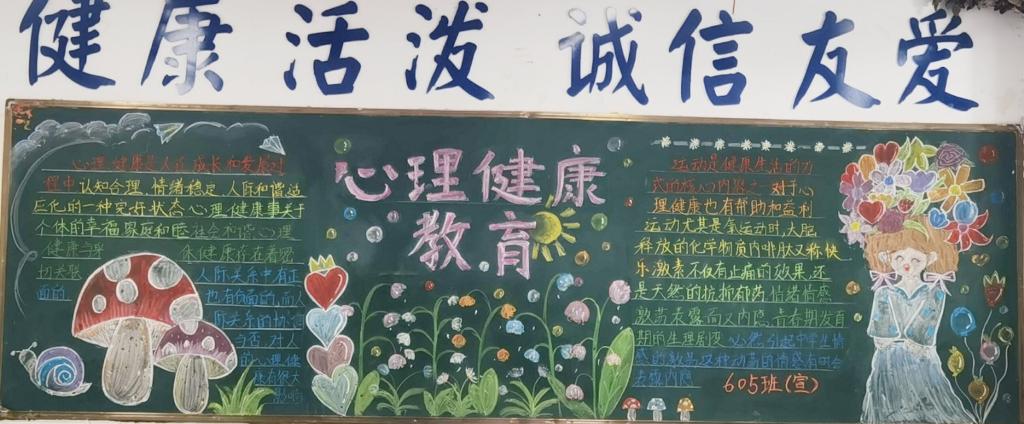 健康 活泼 诚信 友爱
心理健康
教育
心理健康是人在成长和发展过
程中认知合理、情绪稳定、人际和谐适
应变化的一种完好状态心理健康事关于
个体的幸福家庭和睦社会和谐心理
健康与 体健康存在着密
切关联
人际关系中有正
面的 也有负面的,而人
际关系的协调
与否,对人
的心理健
康有很大
影响
运动是健康生活的方
式的核心内容之一 对于心
理健康也有帮助和益利
运动尤其是氧运动时,大脑
释放的化学物质内啡肽又称快
乐激素不仅有止痛的效果,还
是天然的抗抑郁药 情绪情感
青春期发育
期的生理剧变 必然引起中学生情
感的
605班(宣)